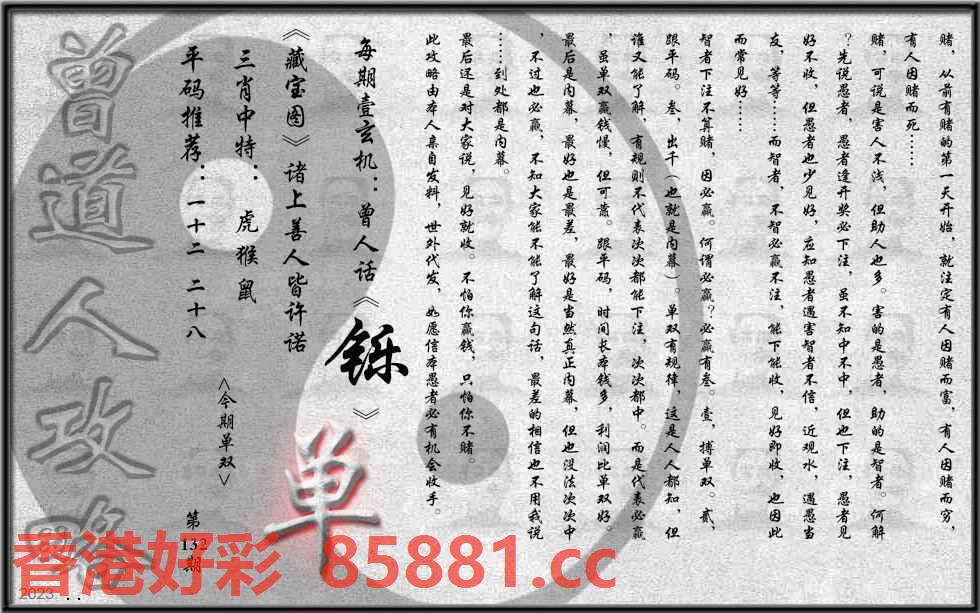 赌，从前有赌的第一天开始，就注定有人因赌而富，有人因赌而穷，
有人因赌而死……
赌，可说是害人不浅，但助人也多。害的是愚者，助的是智者。何解
？先说愚者，愚者逢开奖必下注，虽不知中不中，但也下注，愚者见
好不收，但愚者也少见好，应知愚者遇害智者不信，近观水，遇愚当
友，等等……而智者，不智必赢不注，能下能收，见好即收，也因此
而常见好……
智者下注不算赌，因必赢。何谓必赢？必赢有叁。壹，搏单双。贰，
跟平码。叁，出千（也就是内幕）。单双有规律，这是人人都知，但
谁又能了解，有规则不代表次次都能下注，次次都中。而是代表必赢
，虽单双赢钱慢，但可靠。跟平码，时间长本钱多，利润比单双好。
最后是内幕，最好也是最差，最好是当然真正内幕，但也没法次次中
，不过也必赢，不知大家能不能了解这句话，最差的相信也不用我说
……到处都是内幕。
最后还是对大家说，见好就收。不怕你赢钱，只怕你不赌。
此攻略由本人亲自发料，世外代发，如愿信本愚者必有机会收手。
每期壹玄机：曾人话《铄》
《藏宝图》诸上善人皆许诺
三肖中特：虎猴鼠
平码推荐：一十二 二十八
<今期单双>
单
第
132
期
曾道人攻略
香港好彩 85881.cc
2023